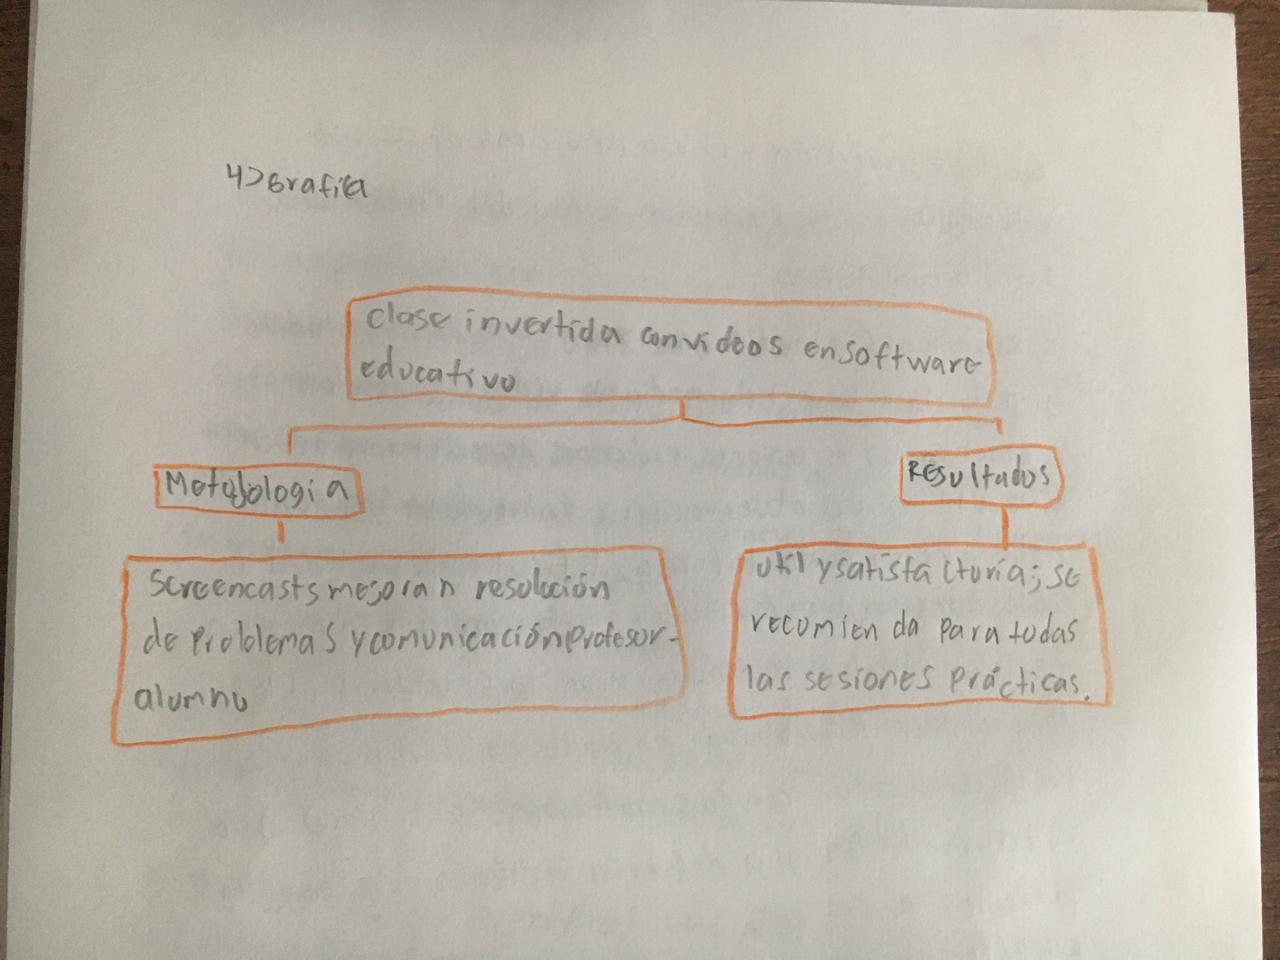 4> Grafica
clase invertida con videos en software
educativo
Metodología
Resultados
Screencasts mejoran resolución
de problemas y comunicación profesor-
alumno
util y satisfacturia; se
recomienda para todas
las sesiones prácticas.